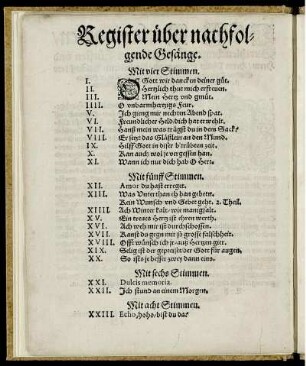 Register über nachfol-
gende Gesänge.
Mit vier Stimmen.
I. O Gott wir dancken deiner güt.
II. Hertzlich thut mich erfrewen.
III. Mein Hertz vnd gmüt.
IIII. O vnbarmhertzigs Faur.
V. Ich gieng mir nechten Abend spat.
VI. Freundlicher Held/dich hat erwehlt.
VII. Hanst mein was trägst du in dem Sack?
VIII. Er setzt das Gläßlein an den Mund.
IX. Hilff Gott in diser
X. Kan auch wol je vergessen han.
XI. Wann ich nur dich hab O Herr.
Mit fünff Stimmen.
XII. Amor du hast erreget.
XIII. Was Unterthan ich han gebetn.
Kein Wunsch vnd Gebet geht. 2. Theil.
XIIII. Ach Winter kalt/wie manigfalt.
XV. Ein trewes Hertz ist ehren werth.
XVI. Ach weh mir ist durchschossen.
XVII. Kanst du gegn mir so grosse falschheit.
XVIII. Offt wünsch ich je auß Hertzen gier.
XIX. Selig ist der gepreiset/der Gott für augen.
XX. So ists je besser zwey dann eins.
Mit sechs Stimmen.
XXI. Dulcis memoria.
XXII. Ich stund an einem Morgen.
Mit acht Stimmen.
XXIII. Echo, hoho/bist du da?